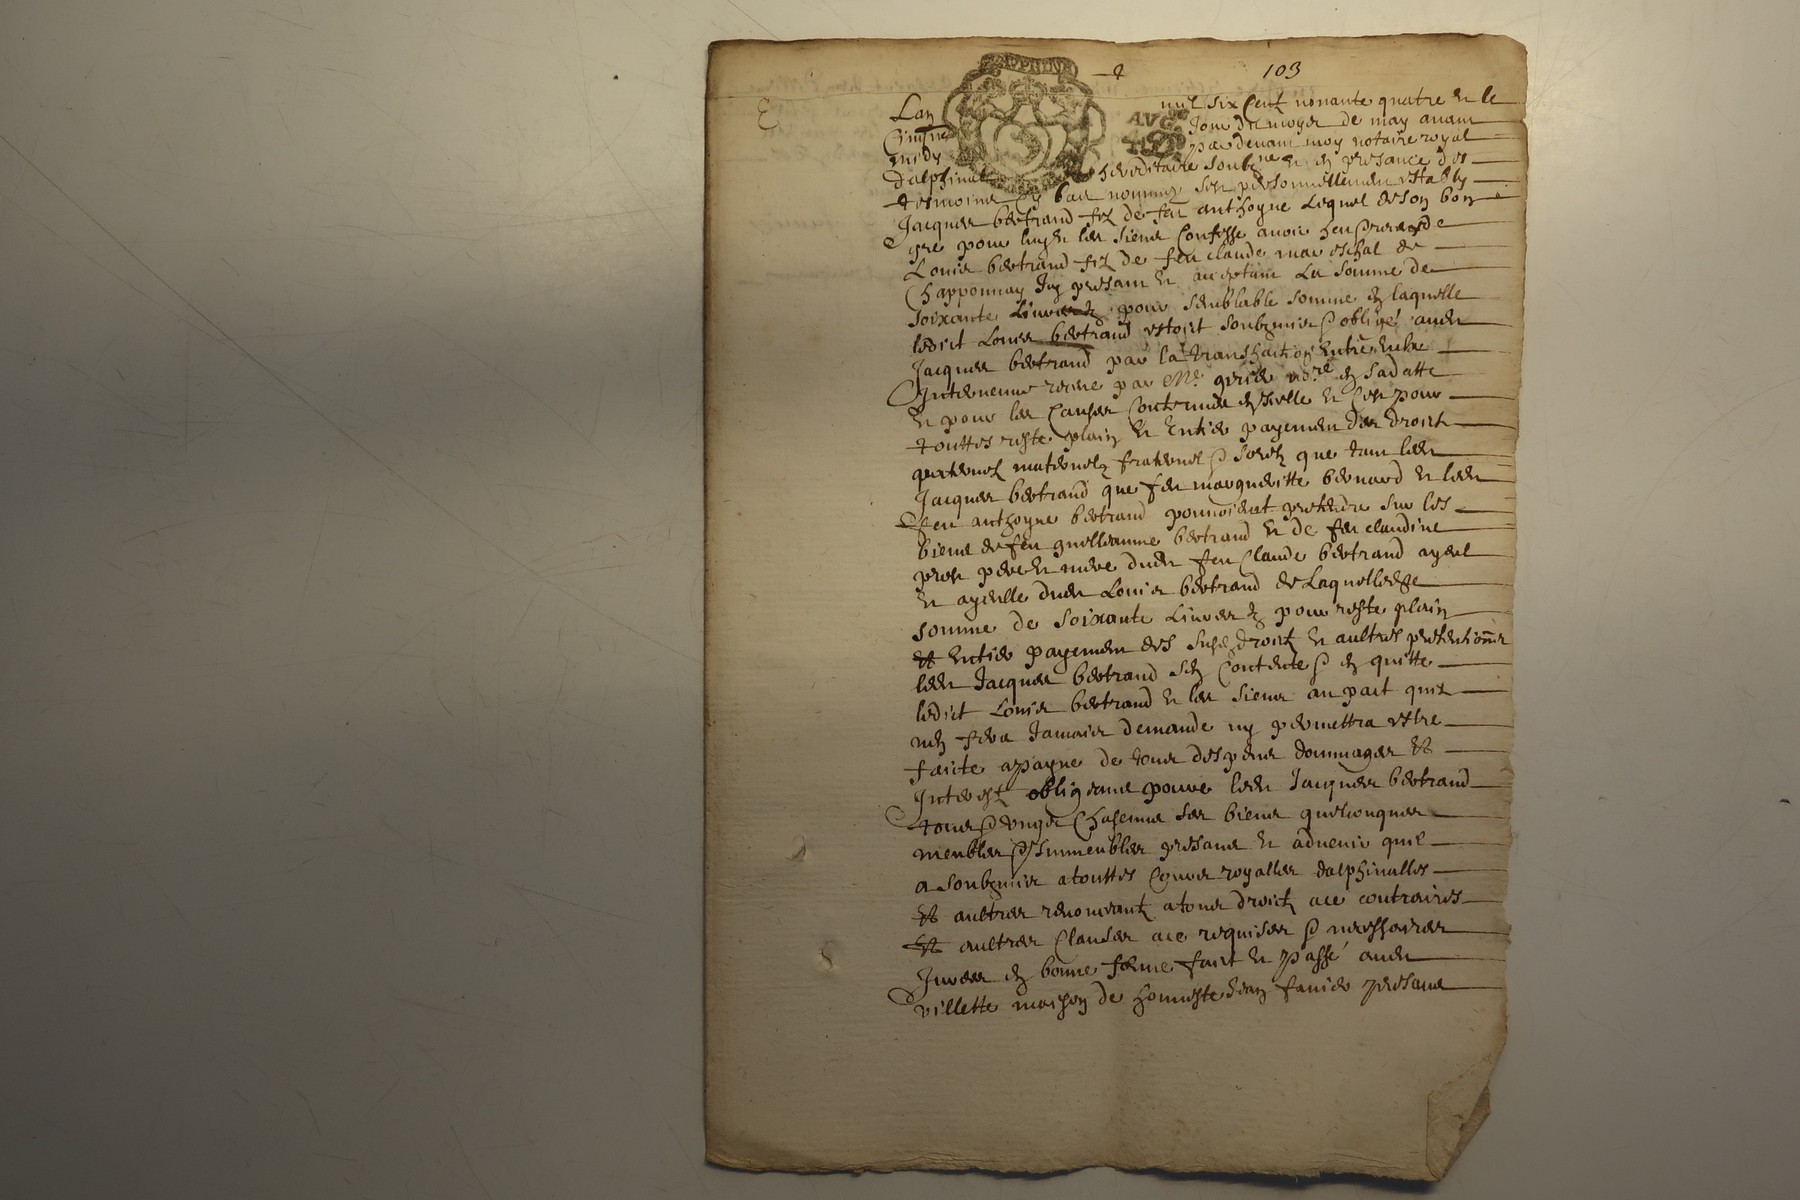 2 103
Lan mil six centz nonante quatre et le
Cinqme jour du moys de may avant
midy par devant moy notaire royal
dalphinal hereditaire soubzne et en presance des
tesmoins cy bas nommes sest personnellement estably
Jacques bertrand filz de feu anthoyne lequel de son bon
gre pour luy et les siens confesse avoir heu et receu de
Louis bertrand filz de feu claude mareschal de
Chapponnay Icy presant et acceptant la somme de
soixante livres pour semblable somme en laquelle
ledict Louis bertrand estoit soubzmis et obligé audit
Jacques bertrand par la transhaction entre eulx
Intervenue receue par Me nore en sa datte
et pour les causes contenues en icelle et cest pour
touttes reste plain et entier payement des droitz
paternelz maternelz fraternelz et que tant ledit
Jacques bertrand que feu margueritte bernard et ledit
feu anthoyne bertrand pouvoient pretendre sur les
biens de feu guilleaume bertrand et de feu claudine
pere et mere dudit feu Claude bertrand ayeul
et ayeulle dudit Louis bertrand de laquelle
somme de soixante livres pour reste plain
et entier payement des susd droitz et aultres pretentions
ledit Jacques bertrand sen contente et en quitte
ledict Louis bertrand et les siens au pact quil
nen fera Jamais demande ny permettra estre
faicte a payne de tous despens dommages et
Interestz obligeant pource ledit Jacques bertrand
tous et ungs chascuns ses biens quelconques
meubles et Immeubles presans et advenir quil
a soubzmis a touttes cours royalles dalphinalles
et aultres renonceant a tous droictz a ce contraires
et aultres clauses a ce requises et necessaires
Jurees en bonne forme faict et passé audit
villette maison de honneste Jean favier presans